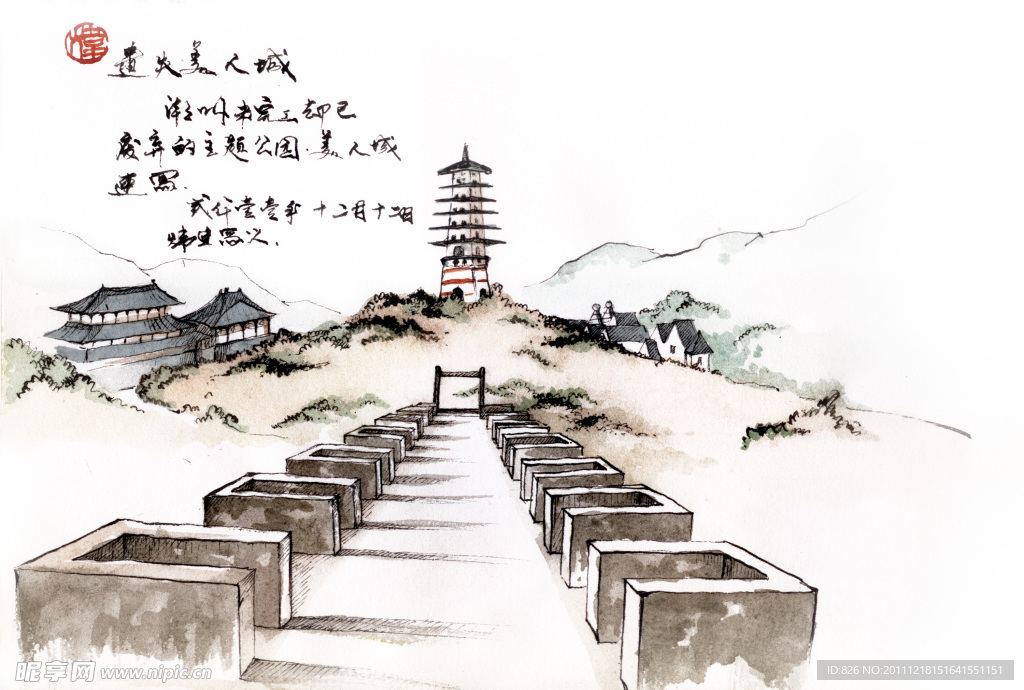 遗失美人城
潮州未完工却已
废弃的主题公园·美人城
速写.
弍仟壹壹年十二月十二日
昵享网 www.nipic.cn
ID:826 NO:20111218151641551151